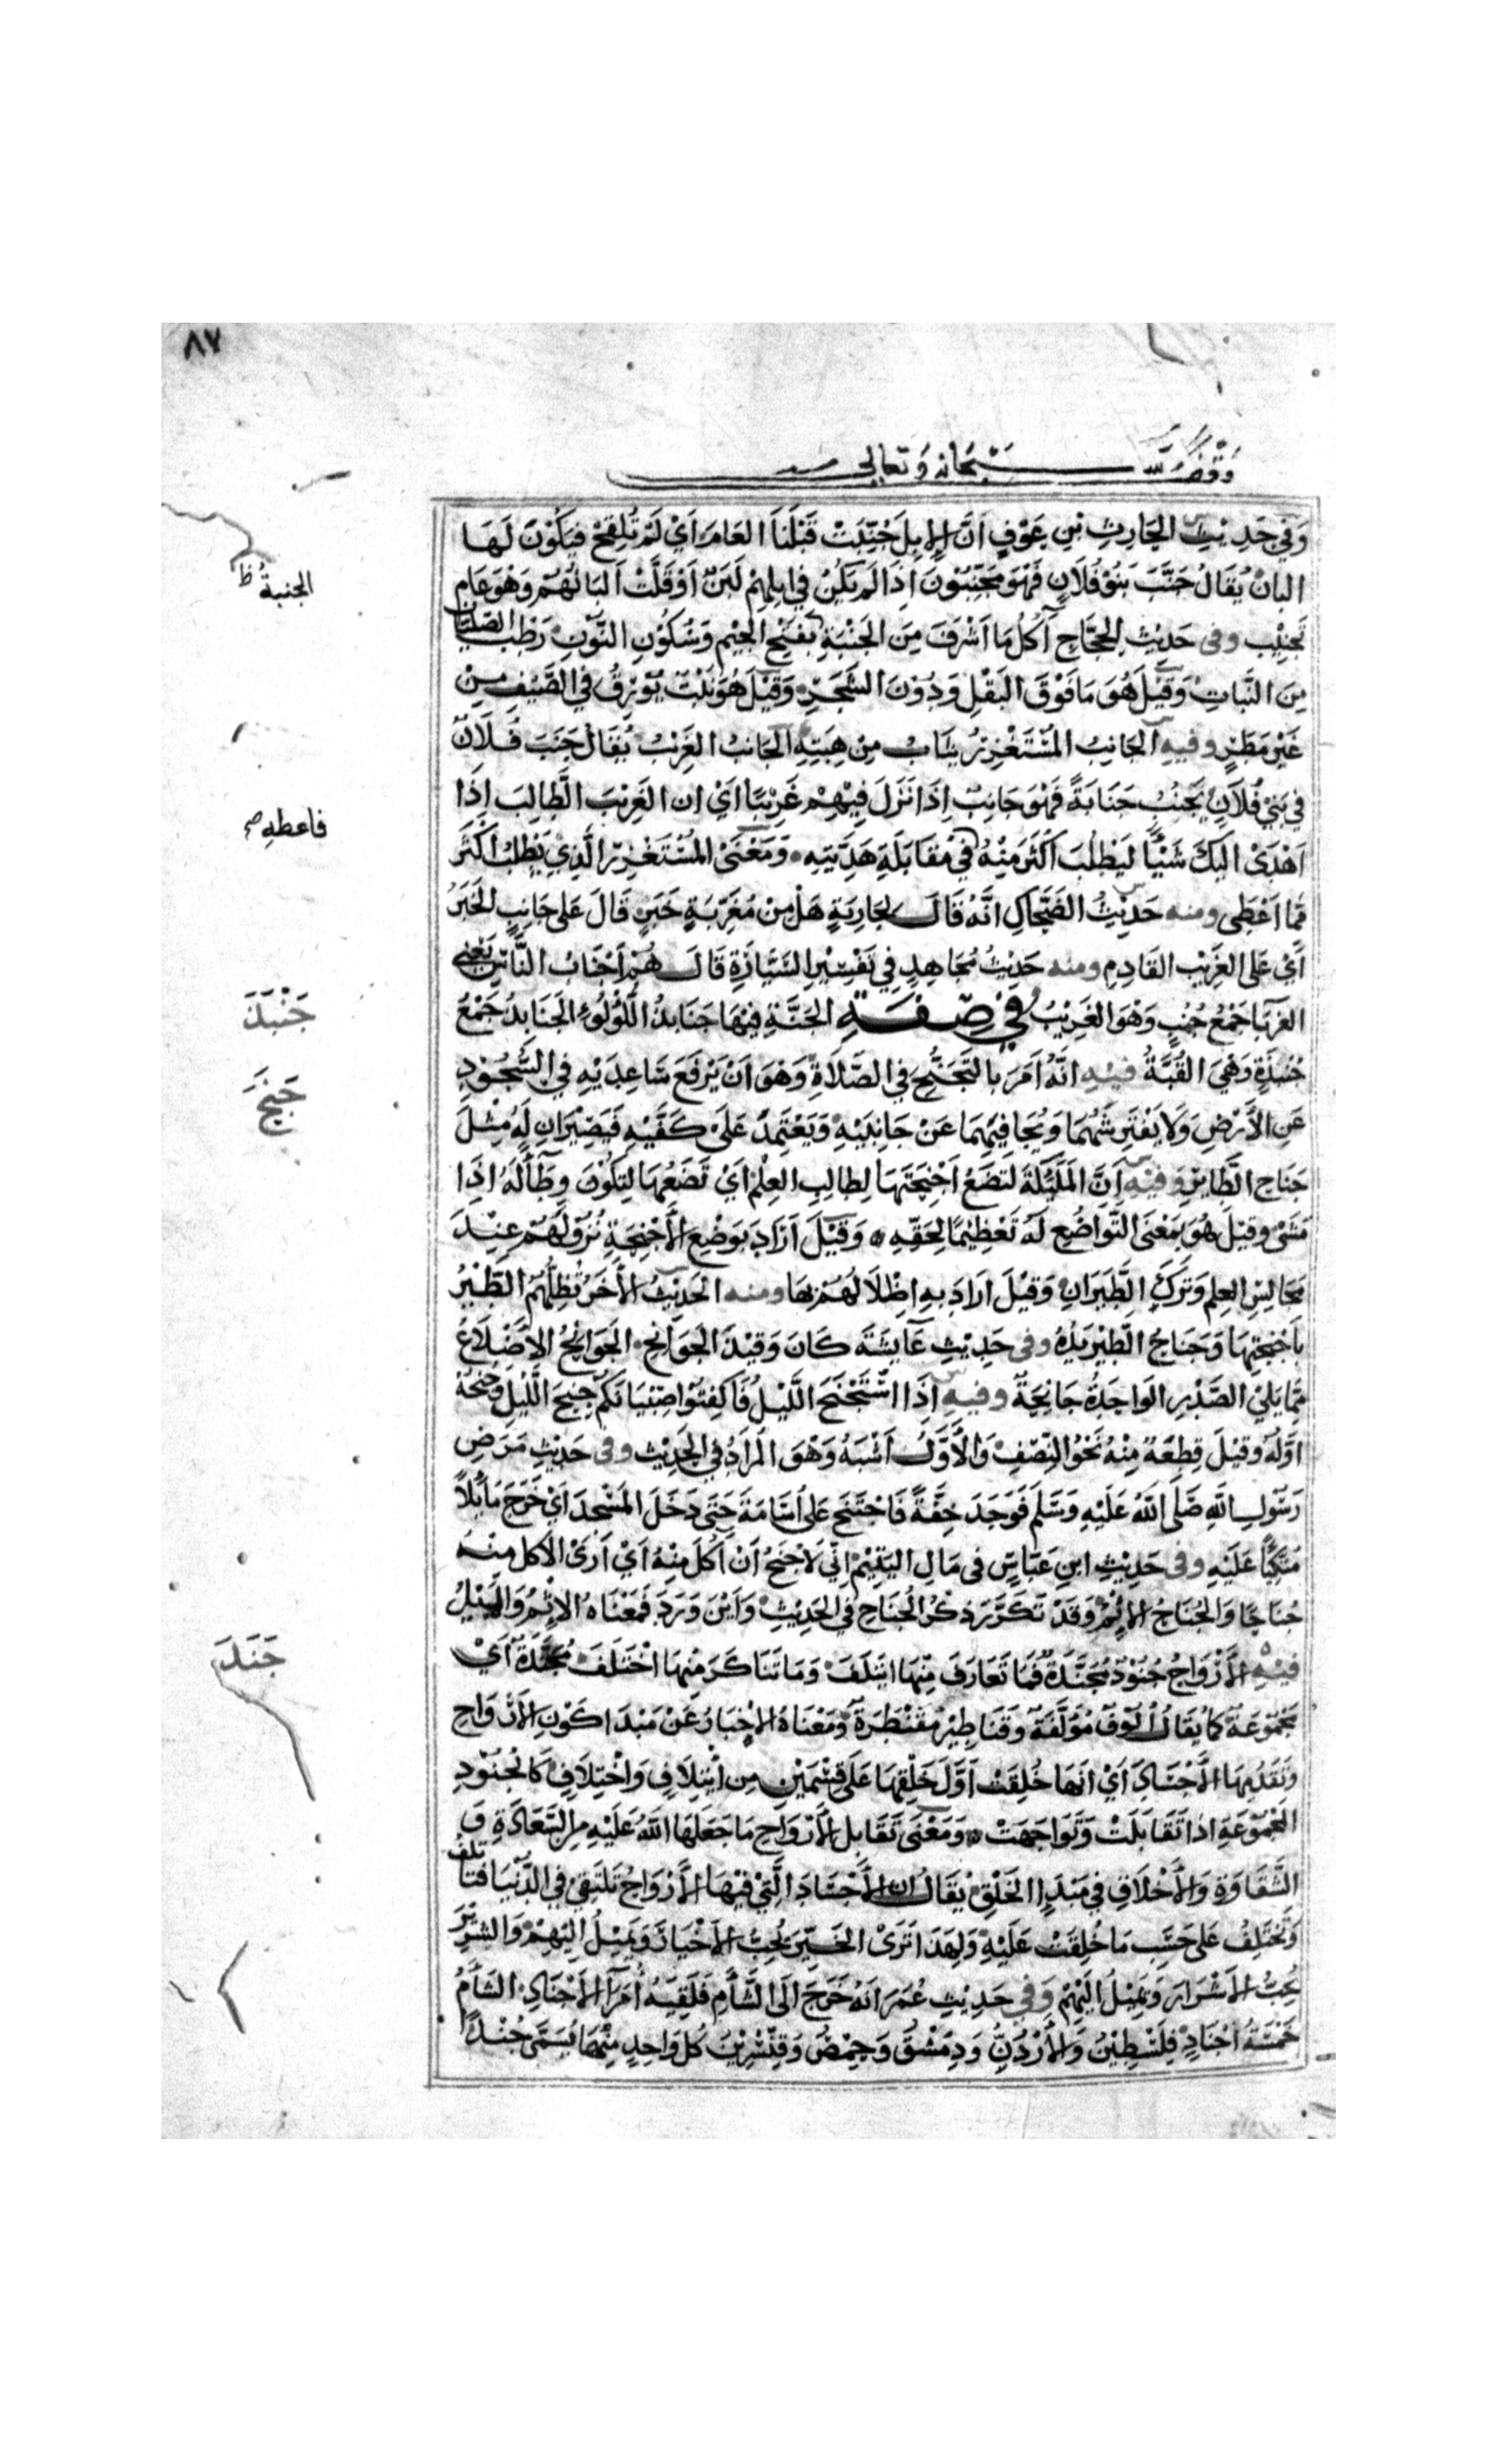 ٨٧
وقف لله سبحانه وتعالى
وَفِي حَدِيْثِ الحَارِثِ بْنِ عَوْفٍ اَنَّ الإِبِلَ جُنِّبَتْ قَبْلَنَا العَامَ اَيْ لَمْ تُلْقَحْ فَيَكُوْنَ لَهَا
البان يُقَالُ جَنَّبَ بَنُوْ فُلَانٍ فَهُوَ مُجَنِّبُوْنَ اِذَا لَم يَكُنْ فِي اِبِلِهِمْ لَبَنٌ اَوْ قَلَّتْ اَلبَانُهُمْ وَهْوَ عَام
تَجْنِيْب وفى حَدِيْثِ الحَجَّاجِ آكُلُ مَا اَشْرَفَ مِنَ الجَنْبَةِ بفَتْحِ الجِيْمِ وَسُكُوْنِ النُّوْنِ رَطْب الصِّلِّيَان
الجنبةُ ظ
مِنَ النَّبَاتِ وَقِيْلَ هُوَ مَا فَوْقَ البَقْلِ وَدُوْنَ الشَّجَرِ وَقِيْلَ هُوَ نَبْتٌ يُوْرِقُ فِي الصَّيْفِ مِنْ
غَيْرِ مَطَرٍ وفيه الجَانِبُ المُسْتَغْزِرُ يثَابُ مِنْ هِبَتِهِ الجَانبُ الغَرِيْبُ يُقَالُ جَنَبَ فُلَانٌ
فِي بَنِيْ فُلَانٍ يَجْنُبُ جَنَابَةً فَهْوَ جَانِبٌ اِذَا نَزَلَ فِيْهِمْ غَرِيْبًا اَيْ ان الغَرِيْبَ الطَّالِبَ اِذَا
اَهْدَىْ اليكَ شَيْئًا لِيَطْلُبَ اَكْثَرَ مِنْهُ فِي مُقَابَلَةِ هَدِيَّتِهِ وَمَعْنَىْ المُسْتَغْزِرِ الَّذِيْ يَطْلُبُ اكْثَرَ
فاعطهِ صح
مِمَّا اَعْطَى ومنه حَدِيْثُ الضَّحَّاكِ انَّهُ قَالَ لِجَارِيَةٍ هَلْ مِنْ مُغَرِّبَةِ خَبَرٍ قَالَ عَلى جَانِبٍ الخَبَرُ
اَيْ عَلى الغَرِيْب القَادِمِ ومنه حَدِيْثُ مُجَاهِدٍ فِي تَفْسِيْرِ السَّيَّارَةِ قَالَ هُمْ اَجْنَابُ النَّاسِ يَعْنِي
الغرَبَا جَمْعُ جُنُبٍ وَهْوَ الغَرِيْبُ فِي صِفَةِ الجَنَّةِ فِيْهَا جَنَابِذُ اللُّؤْلُوءِ الجَنَابِذُ جَمْعُ
جَنْبَذَ
جُنْبُذَةٍ وَهْيَ القُبَّةُ فِيْهِ انَّهُ اَمَرَ بالتَّجَنُّحِ فِي الصَّلَاةِ وَهْوَ اَنْ يَرْفَعَ سَاعِدَيْهِ فِي السُّجُوْدِ
جَنَحَ
عَنِ الاَرْضِ وَلَا يَفْتَرِشهُمَا وَيُجَافِيْهِمَا عَنْ جَانِبَيْهِ وَيَعْتَمِدَ عَلَىْ كَفَّيْهِ فَيَصِيْرَانِ لَهُ مِثْلَ
جَنَاحِ الطَّايرِ وَفيْهِ اَنَّ المَلَئِكَةَ لَتَضَعُ اَجْنِحَتَهَا لِطالِبِ العِلْمِ اَيْ تَضَعُهَا لِتَكُوْنَ وِطَآءً لَهُ اِذَا
مَشَىْ وقِيْلَ هُوَ بِمَعْنَى التَّوَاضُعِ لَهُ تَعْظِيْمًا لِحَقِّهِ وَقِيْلَ اَرَادَ بوَضْعِ الاَجْنِحَةِ نُزُوْلَهُمْ عِنْدَ
مَجَالِسِ العِلمِ وَتَرْكَ الطَّيَرَانِ وَقِيْلَ اَرَادَ بهِ اِظْلَالَهُمْ بِهَا ومنه الحَدِيْثُ الاخَرُ تُظِلُّهُمُ الطَّيْرُ
بِاَجْنِحَتِهَا وَجَنَاحُ الطَّيْرِ يَدُهُ وفى حَدِيْثِ عَآيِشَةَ كَانَ وَقِيْذَ الجَوَانِحِ الجَوَانِحُ الاَضْلَاعُ
مِمَّا يَلِي الصَّدْرِ الوَاحِدَةُ جَانِحَةٌ وفيه اِذَا اسْتَجْنَحَ اللَّيْلُ فَاكفِتُوْا صِبْيَانَكُمْ جِنْحَ اللَّيْلِ وجنحُهُ
اوَّلُهُ وقِيْلَ قِطْعَةٌ مِنْهُ نَحْوُ النِّصْفِ وَالاَوَّلُ اَشْبَهُ وَهْوَ المُرَادُ فِي الحَدِيْث وفى حَدِيْثِ مَرَضِ
رَسُوْلِ اللهِ صَلَّى اللهُ عَلَيْهِ وَسَلَّمَ فَوَجَدَ خِفَّةً فَاجْتَنَحَ عَلى اُسَامَةَ حَتَى دَخَلَ المَسْجِدَ اَيْ خَرَجَ مَايِلًا
مُتَّكِيًا عَلَيْهِ وفى حَدِيْثِ ابنِ عَبَّاسٍ فى مَالِ اليَتِيْمِ اِنِّي لَاَجْنَحُ اَنْ آكُلَ مِنْهُ اَيْ اَرَى الاكل مِنْهُ
جُنَاحًا وَالجُنَاحُ الاِثْمُ وَقَدْ تَكَرَّرَ ذِكْرُ الجُنَاحِ فِي الحَدِيْثِ وَاَيْنَ وَرَدَ فَمَعْنَاهُ الاِثْمُ وَالمَيْلُ
فيْهِ الاَرْوَاحُ جُنُوْدٌ مُجَنَّدَةٌ فَمَا تَعَارَفَ مِنْهَا ايْتَلَفَ وَمَا تَنَاكَرَ مِنْهَا اخْتَلَفَ مُجَنَّدَةٌ اَيْ
جَنَدَ
مَجْمُوْعَةٌ كَمَا يُقَالُ اُلُوْفٌ مُؤَلَّفَةٌ وَقَنَاطِيْرُ مُقَنْطَرَةٌ وَمَعْنَاهُ الاِخْبَارُ عَنْ مَبْدَا كَوْنِ الاَرْوَاحِ
وَتَقَدُّمِهَا الاَجْسَادِ اَيْ اَنهَا خُلِقَتْ اَوَّلَ خَلْقِهَا عَلَى قِسْمَيْنِ مِن ائْتِلَافٍ وَاخْتِلَافٍ كَالجُنُوْدِ
المَجْمُوْعَةِ اذا تَقَابَلَتْ وَتَوَاجَهَتْ وَمَعْنَى تَقَابل الاَرْوَاحِ مَا جَعَلَهَا اللهُ عَلَيْهِ مِن السَّعَادَةِ وَ
الشَّقَاوَةِ وَالاَخْلَاقِ فِي مَبْدَا الخَلْقِ يُقَالُ ان الاَجْسَادَ الَّتِي فِيْهَا الاَرْوَاحُ تَلْتَقِيْ فِي الدُّنْيَا فَتَأتَلِفُ
وَتَخْتَلِفُ عَلى حَسَبِ مَا خُلِقَتْ عَلَيْهِ وَلِهَذَا تَرَىْ الخَيِّرَ يُحِبُّ الاَخْيَارَ وَيَمِيْلُ اِلَيْهِمْ وَالشِّرِّيْر
يُحِبُّ الاَشْرَارَ وَيَمِيْلُ اِلَيْهِمْ وَفِي حَدِيْثِ عُمَرَ انَهُ خَرَجَ الَى الشَّأْمِ فَلَقِيَهُ اُمَرَآ الاَجْنَادِ الشَّأْمُ
خَمْسَةُ اَجْنَادٍ فِلَسْطِيْنُ وَالاُرْدُنُّ وَدِمَشْقُ وَحِمْصُ وَقِنَّسْرِيْنَ كُلُّ وَاحِدٍ مِنْهَا يُسَمَّى جُنْدًا